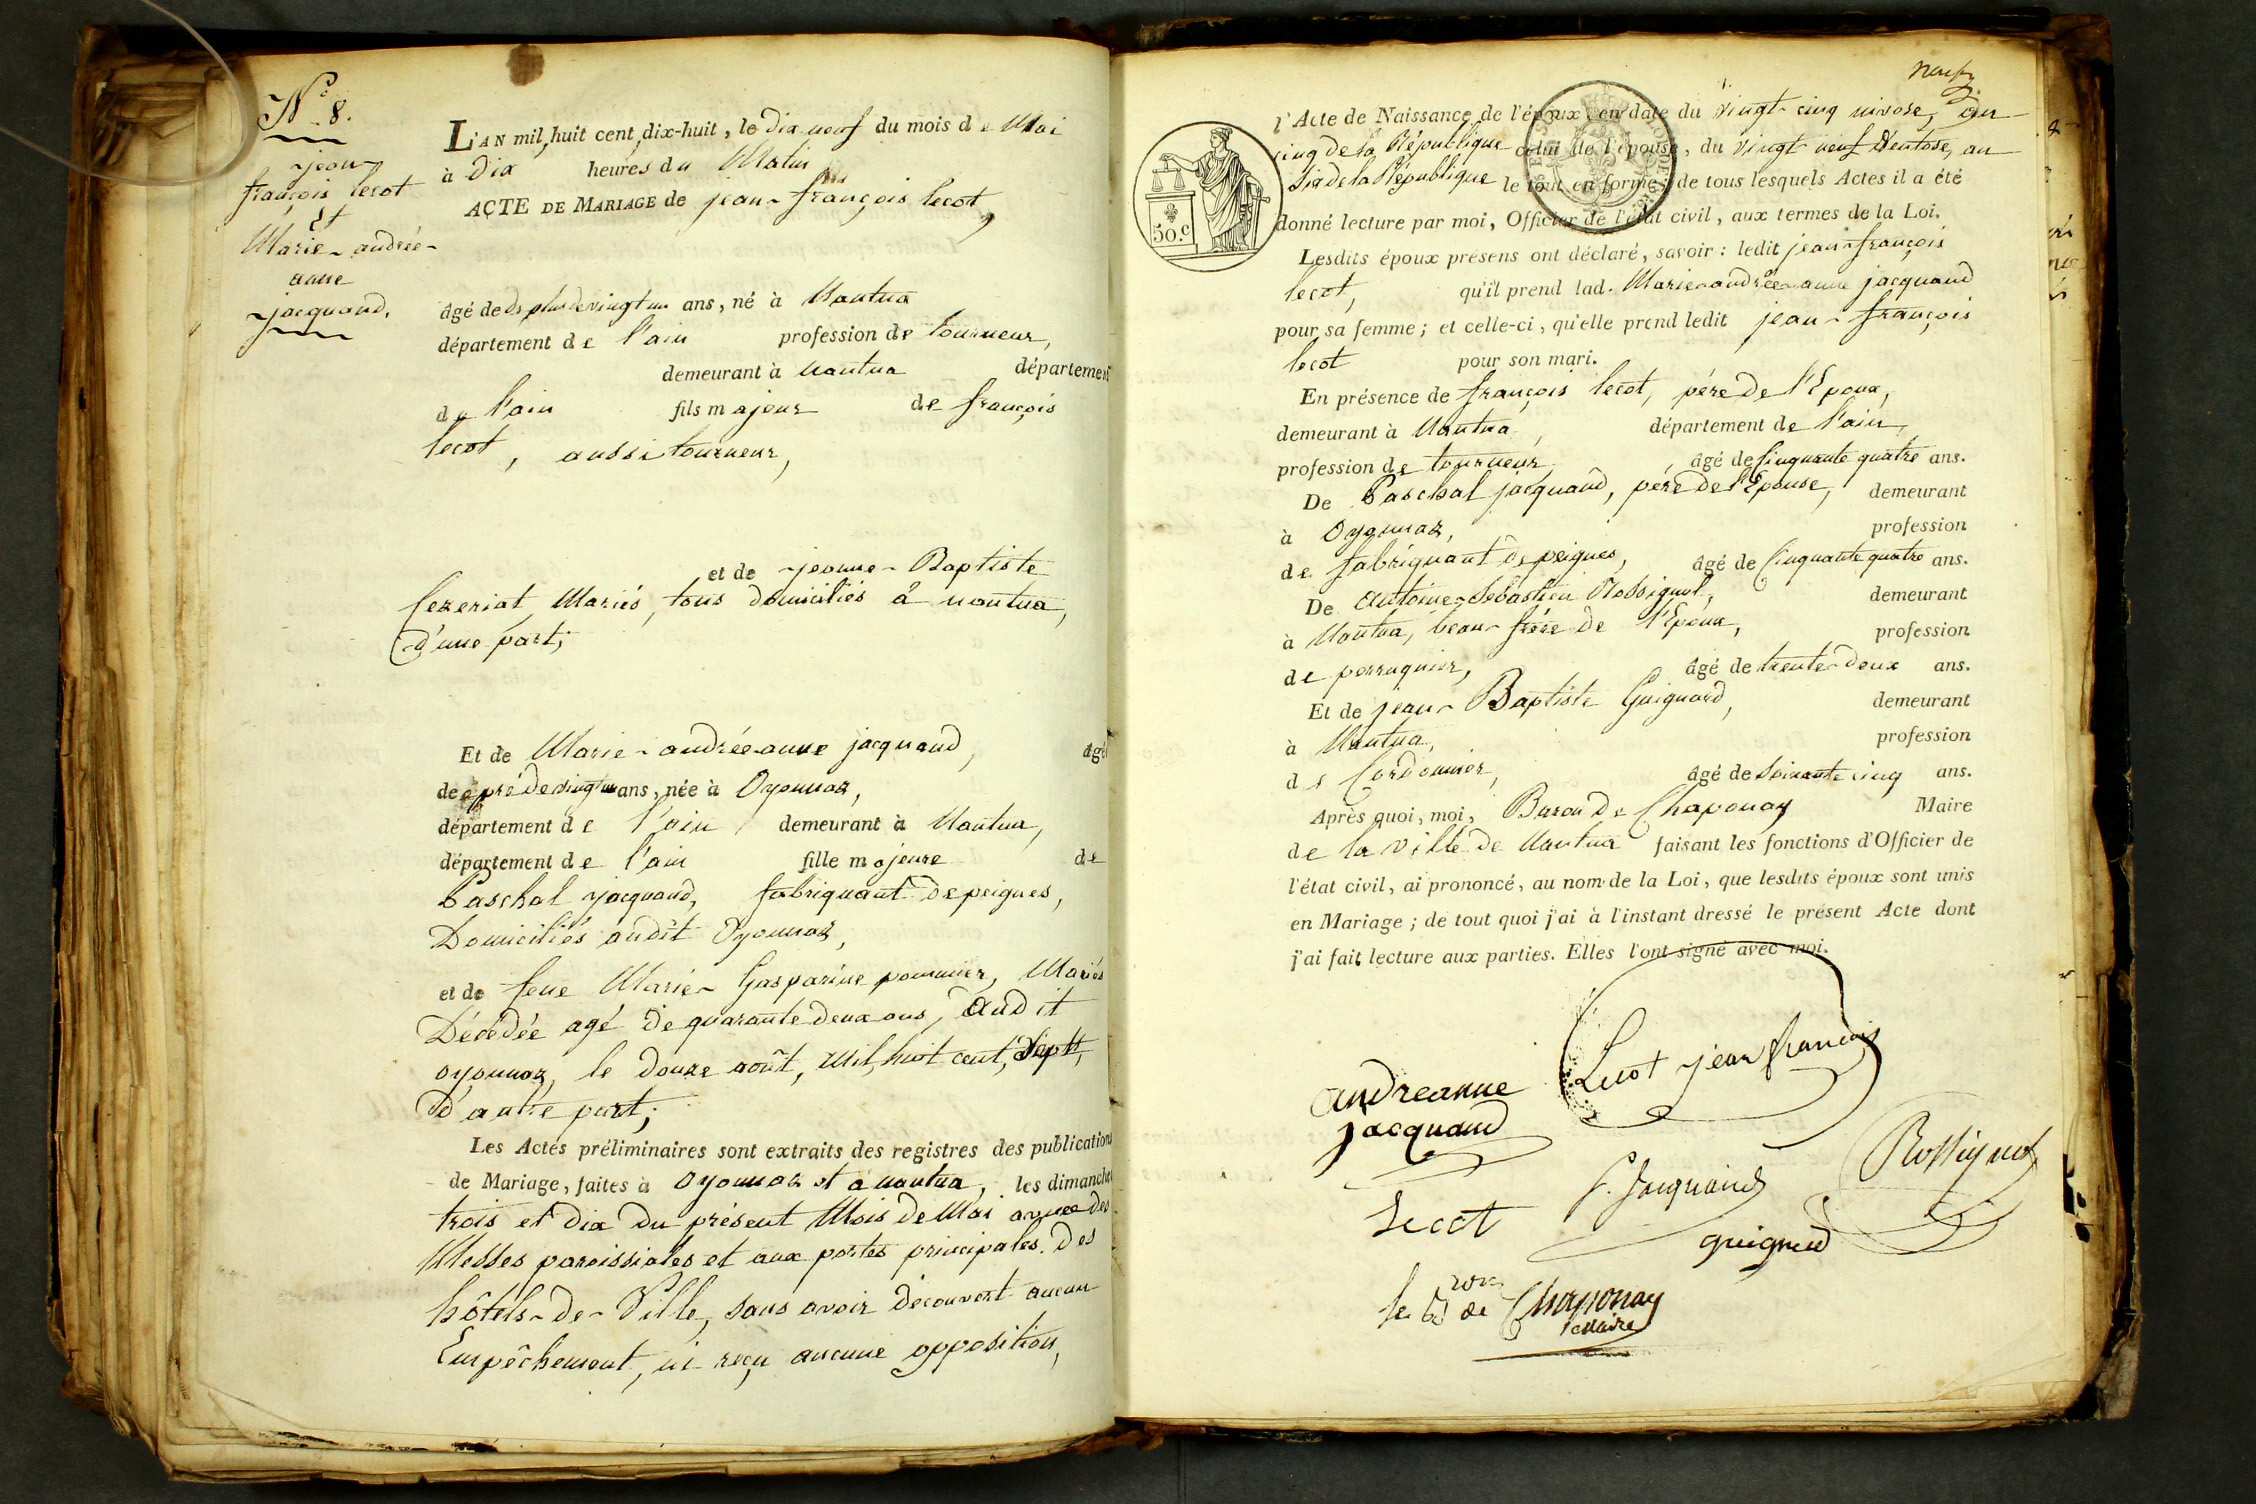 N.º 8.
jean
françois lecot
Et
Marie-andrée-
anne
jacquand.
L'AN mil huit cent dix-huit, le dix neuf du mois de Mai
à Dix heures du Matin
ACTE DE MARIAGE de jean-françois lecot,
âgé de de plus de vingt un ans, né à Nantua
département de l'ain profession de tourneur,
demeurant à nantua département
de l'ain fils majeur de françois
lecot, aussi tourneur,
et de jeanne-Baptiste
Cezeriat Mariés, tous domiciliés à nantua,
d'une part;
Et de Marie-andrée-anne jacquand, agé
de de vingt un ans, née à Oyonnax,
département de l'ain demeurant à Nantua,
département de l'ain fille majeure de
Paschal jacquand, fabriquant de peignes,
Domiciliés audit Oyonnax,
et de feue Marie-Gasparine pommier, Mariés
Décédée agé de quarante deux ans, audit
oyonnax, le douze août, mil huit cent, Sept,
d'autre part;
Les Actes préliminaires sont extraits des registres des publications
de Mariage, faites à Oyonnax et à nantua, les dimanches
trois et dix du présent Mois de Mai des
Messes paroissiales et aux portes principales des
hôtels-de-Ville, sans avoir découvert aucun
Empêchement, ni reçu aucune opposition,
neuf
l'Acte de Naissance de l'époux en date du vingt-cinq nivose, an
cinq de la République celui de l'épouse, du vingt neuf Ventose, an
Six de la République le tout en forme; de tous lesquels Actes il a été
50.c
donné lecture par moi, Officier de l'état civil, aux termes de la Loi.
Lesdits époux présens ont déclaré, savoir: ledit jean-françois
lecot, qu'il prend lad. Marie-andrée-anne jacquand
pour sa femme; et celle-ci, qu'elle prend ledit jean-françois
lecot pour son mari.
En présence de françois lecot, père de l'Epoux,
demeurant à Nantua, département de l'ain,
profession de tourneur, âgé de Cinquante quatre ans.
De Paschal jacquand, père de l'Epouse, demeurant
à Oyonnax, profession
de fabriquant de peignes, âgé de Cinquante quatre ans.
De antoine-Sebastien Rossignol, demeurant
à Nantua, beau-frère de l'Epoux, profession
de perruquier, âgé de trente-deux ans.
Et de jean-Baptiste Guignard, demeurant
à Nantua, profession
de Cordonnier, âgé de Soixante cinq ans.
Après quoi, moi, Baron de Chaponay Maire
de la Ville de Nantua faisant les fonctions d'Officier de
l'état civil, ai prononcé, au nom de la Loi, que lesdits époux sont unis
en Mariage; de tout quoi j'ai à l'instant dressé le présent Acte dont
j'ai fait lecture aux parties. Elles l'ont signé avec moi.
Lecot jean françois
andreanne
jacquand
Rossignol
P. Jacquand
Lecot
guignard
le Bron de Chaponay
le Maire